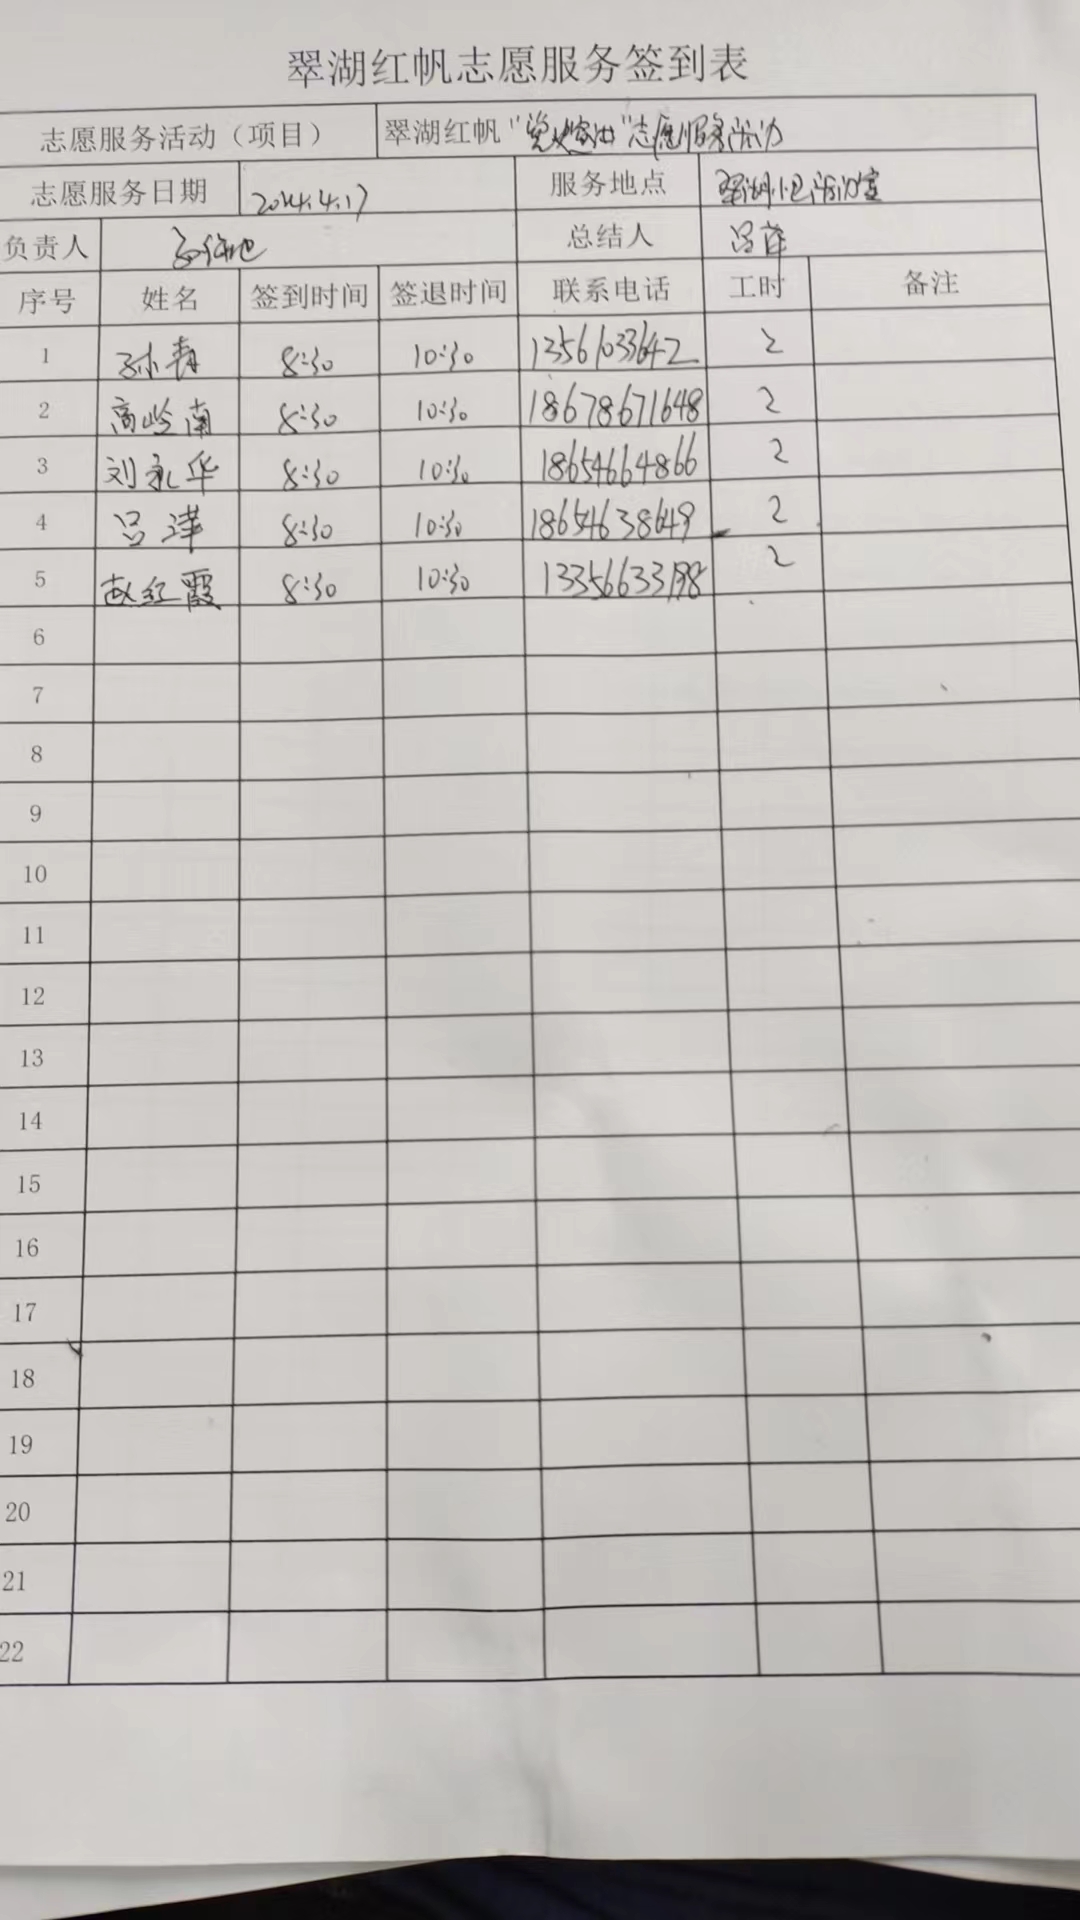 翠湖红帆志愿服务签到表
志愿服务活动（项目） 翠湖红帆“党史宣讲”志愿服务活动
志愿服务日期 2024.4.17 服务地点 翠湖小区活动室
负责人 总结人 吕萍
序号 姓名 签到时间 签退时间 联系电话 工时 备注
1 孙青 8:30 10:30 13561033642 2
2 高岭南 8:30 10:30 18678671648 2
3 刘永华 8:30 10:30 18654664866 2
4 吕洋 8:30 10:30 18654638649 2
5 赵红霞 8:30 10:30 2
6
7
8
9
10
11
12
13
14
15
16
17
18
19
20
21
22